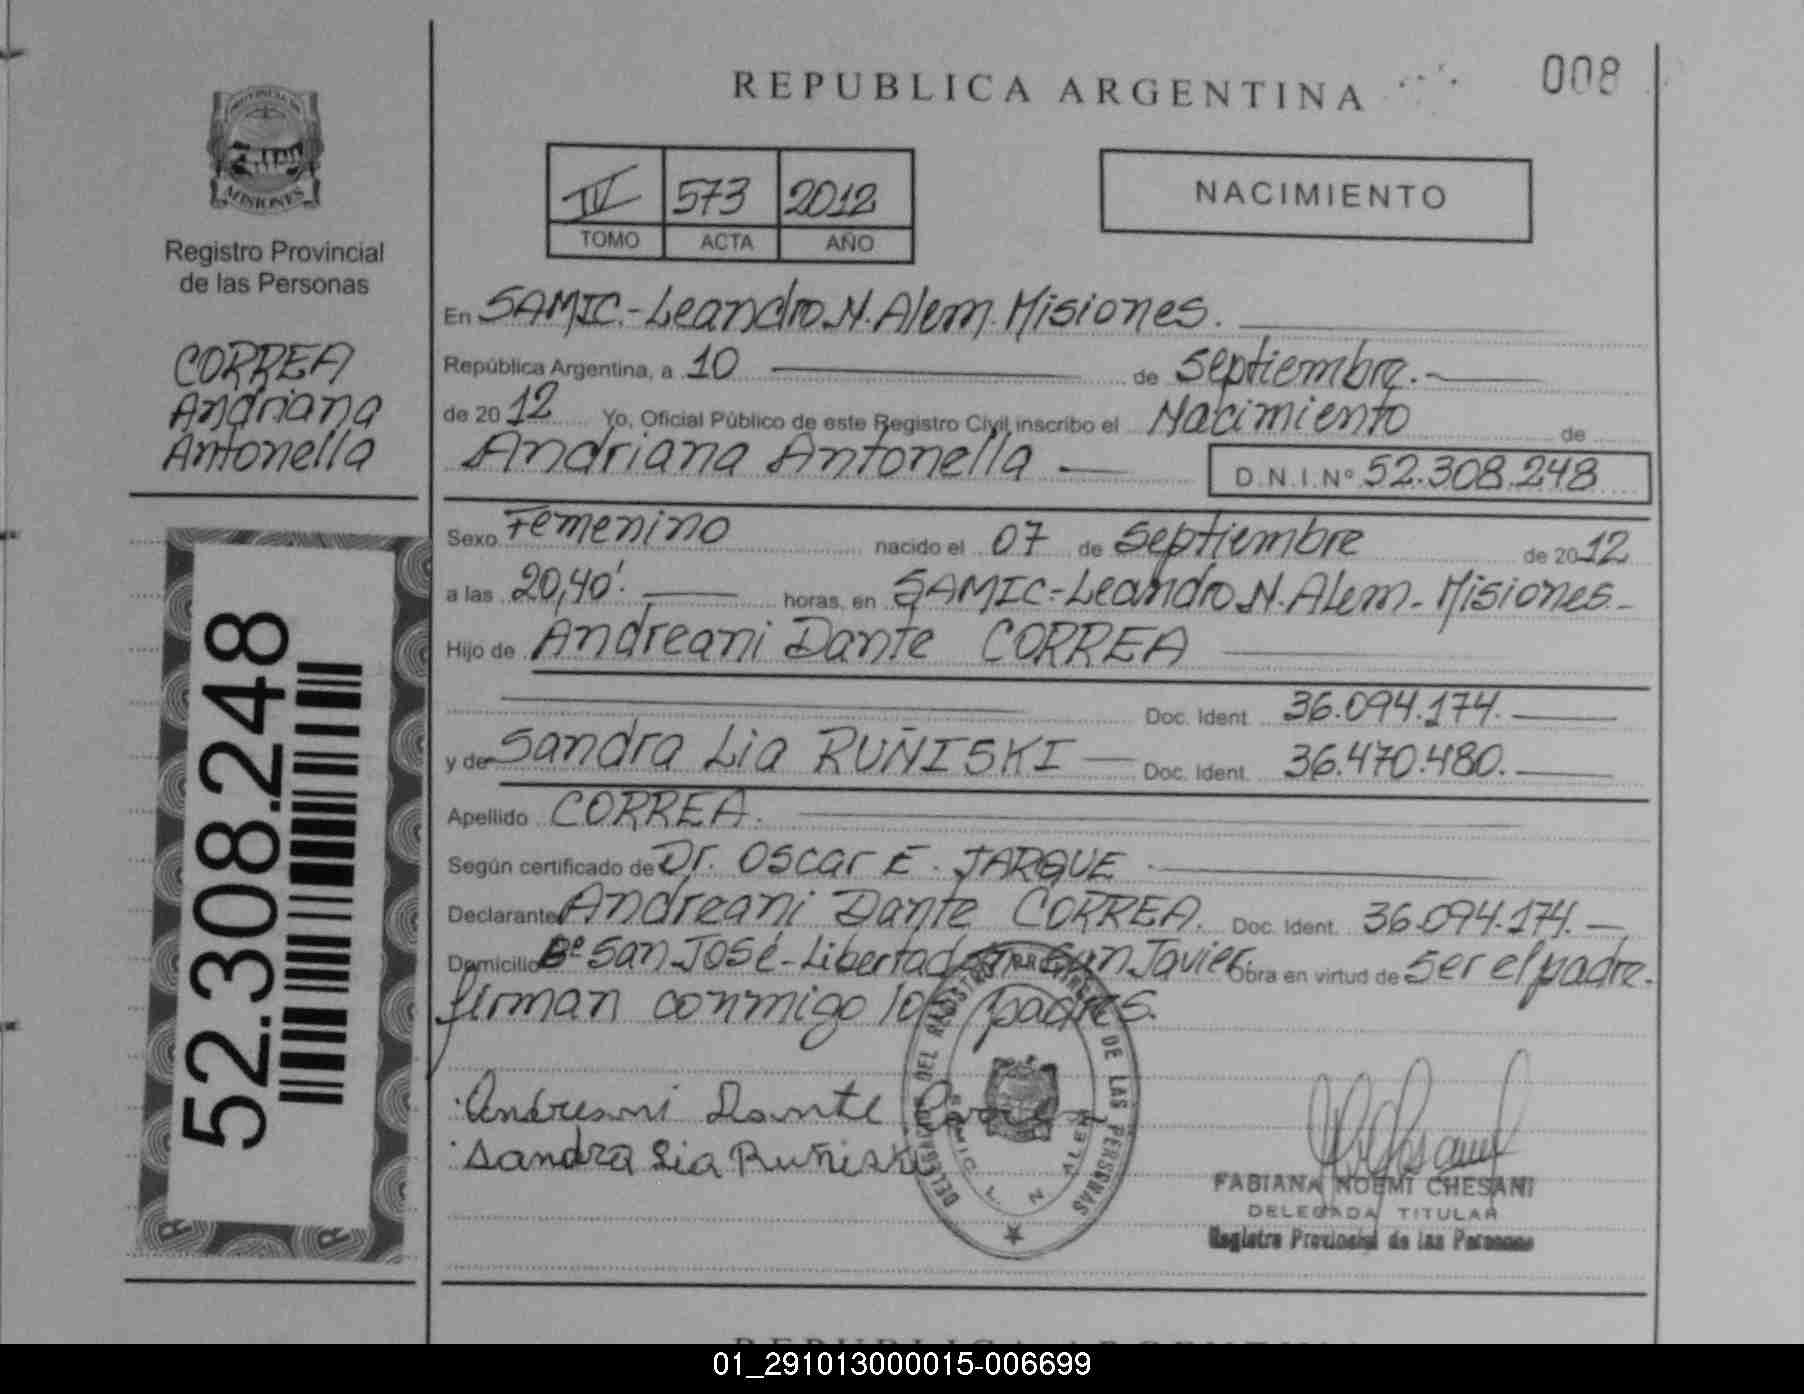 008
REPUBLICA ARGENTINA
PROVINCIA DE
MISIONES
Registro Provincial
de las Personas
IV 573 2012
TOMO ACTA AÑO
NACIMIENTO
CORREA
Andriana
Antonella
En SAMIC.-Leandro N. Alem. Misiones.
República Argentina, a 10 de septiembre.-
de 2012 Yo, Oficial Público de este Registro Civil inscribo el Nacimiento de
Andriana Antonella
D.N.I.Nº 52.308.248
Sexo Femenino nacido el 07 de septiembre de 2012
a las 20,40'. horas, en SAMIC-Leandro N. Alem.- Misiones.-
Hijo de Andreani Dante CORREA
Doc. Ident. 36.094.174.
y de Sandra Lia RUÑISKI Doc. Ident. 36.470.480.
Apellido CORREA.
Según certificado de Dr. Oscar E. JARQUE.
Declarante Andreani Dante CORREA. Doc. Ident. 36.094.174.
Domicilio Bº San José-Libertad San Javier. Obra en virtud de ser el padre.
firman conmigo los padres.
52.308.248
Andreani Dante Correa
Sandra Lia Ruñiski
DEL REGISTRO PROVINCIAL DE LAS PERSONAS
SAMIC L. N. ALEM
FABIANA NOEMI CHESANI
DELEGADA TITULAR
Registro Provincial de las Personas
REPUBLICA ARGENTINA
01_291013000015-006699